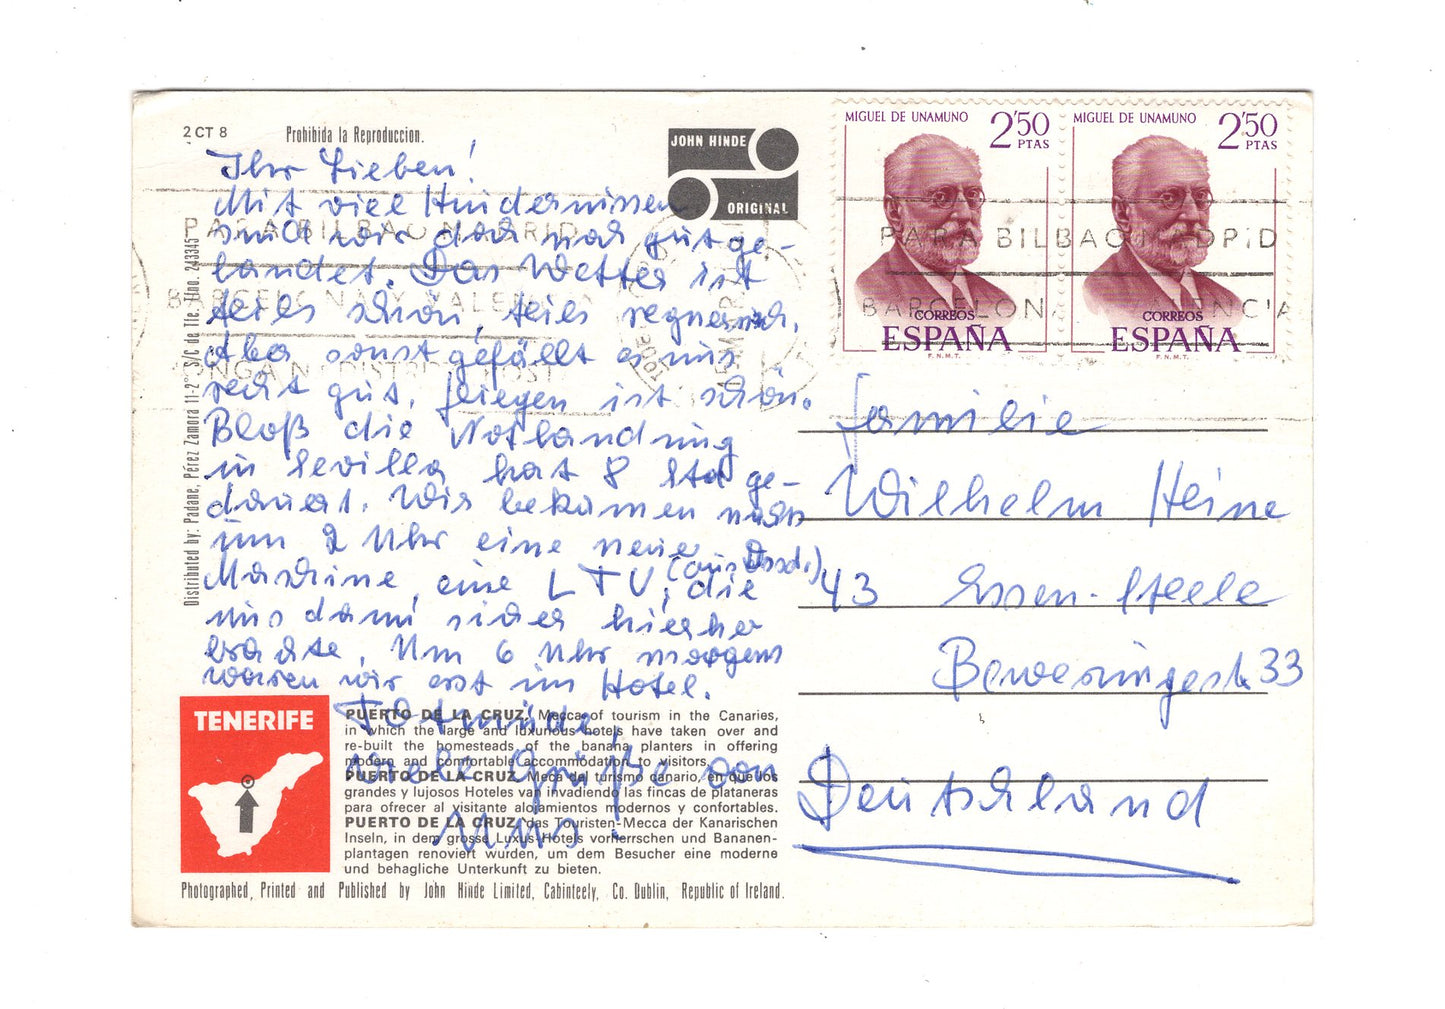 2 CT 8
Prohibida la Reproduccion.
JOHN HINDE
ORIGINAL
MIGUEL DE UNAMUNO
2'50
PTAS
CORREOS
ESPAÑA
F.N.M.T.
MIGUEL DE UNAMUNO
2'50
PTAS
CORREOS
ESPAÑA
F.N.M.T.
PARA BILBAO MADRID
BARCELONA Y VALENCIA
PONGA Nº DISTRITO POST
PARA BILBAO MADRID
BARCELONA VALENCIA
Distributed by: Padane, Pérez Zamora 11-2° S/C de Tfe. Tfno. 243345
Ihr Lieben!
Mit viel Hindernissen
sind wir doch noch gut ge-
landet. Das Wetter ist
teils schön, teils regnerisch.
Aber sonst gefällt es uns
recht gut. Fliegen ist schön.
Bloß die Notlandung
in Sevilla hat 8 Std ge-
dauert. Wir bekamen nachts
um 2 Uhr eine neue
Maschine, eine LTU, (aus Dssd.) die
uns dann sicher hierher
brachte. Um 6 Uhr morgens
waren wir erst im Hotel.
viele Grüße von
uns!
Familie
Wilhelm Heine
43 Essen-Steele
33
Deutschland
TENERIFE
PUERTO DE LA CRUZ, Mecca of tourism in the Canaries,
in which the large and luxurious hotels have taken over and
re-built the homesteads of the banana planters in offering
modern and comfortable accommodation to visitors.
PUERTO DE LA CRUZ, Meca del turismo canario, en que los
grandes y lujosos Hoteles van invadiendo las fincas de plataneras
para ofrecer al visitante alojamientos modernos y confortables.
PUERTO DE LA CRUZ, das Touristen-Mecca der Kanarischen
Inseln, in dem grosse Luxus-Hotels vorherrschen und Bananen-
plantagen renoviert wurden, um dem Besucher eine moderne
und behagliche Unterkunft zu bieten.
Photographed, Printed and Published by John Hinde Limited, Cabinteely, Co. Dublin, Republic of Ireland.